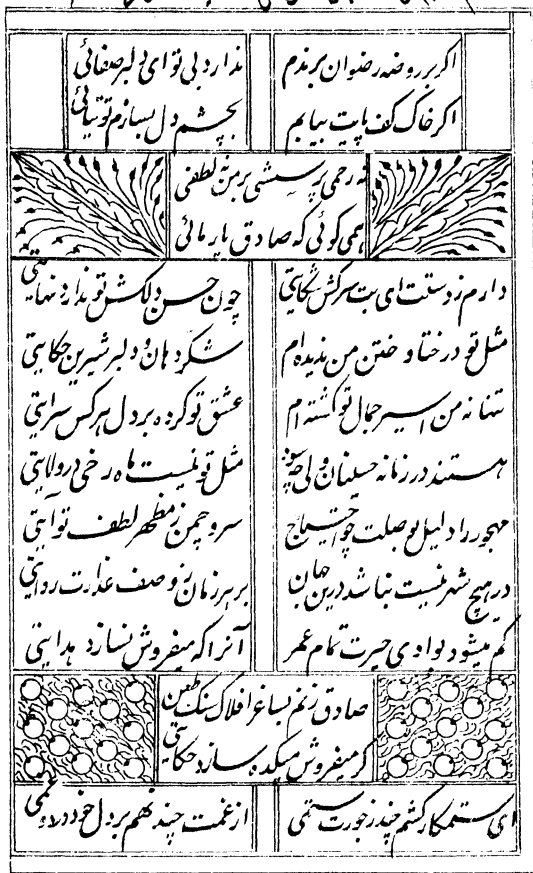 اکر بر روضه رضوان برندم
ندارد بی تو ای دلبر صفائی
اکر خاک کف پایت بیابم
بچشم دل بسازم توتیائی
نه رحمی پرسشی بر من نه لطفی
همی کوئی که صادق یار مائی
دارم ز دستت ای بت سرکش شکایتی
چون حسن دلکش تو ندارد نهایتی
مثل تو در ختا و ختن من ندیده ام
شکر دهان و دلبر شیرین حکایتی
تنها نه من اسیر جمال تو کشته ام
عشق تو کرده بر دل هر کس سرایتی
هستند در زمانه حسینان ولی چه سود
مثل تو نیست ماه رخی در ولایتی
مهجور را دلیل بوصلت چو احتیاج
سرو چمن ز مظهر لطف تو آیتی
در هیچ شهر نیست نباشد درین جهان
بر هر زمان ز وصف عذارت روایتی
کم میشود بوادی حیرت تمام عمر
آنرا که میفروش نسازد هدایتی
صادق زنم بساغر افلاک سنک طعن
کر میفروش میکده سازد حکایتی
ای ستمکار کشم چند ز جورت ستمی
از غمت چند نهم بر دل خود